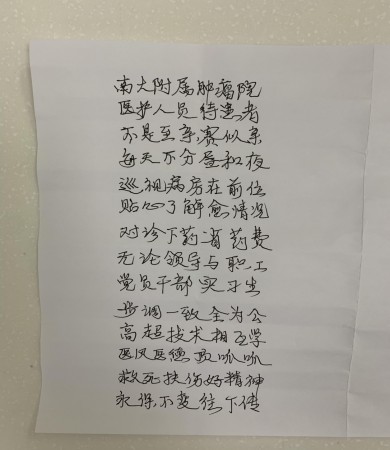 南大附属肿瘤院
医护人员待患者
不是至亲赛似亲
每天不分昼和夜
巡视病房在前位
贴心了解愈情况
对诊下药省药费
无论领导与职工
党员干部实习生
步调一致全为公
高超技术相互学
医风医德顶呱呱
救死扶伤好精神
永保不变往下传